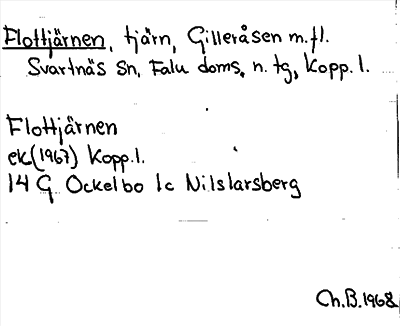 Flottjärnen, tjärn, Gilleråsen m.fl.
Svartnäs sn, Falu doms. n. tg, Kopp. l.
Flottjärnen
ek(1967) Kopp.l.
14 G Ockelbo 1c Nilslarsberg
Ch.B.1968